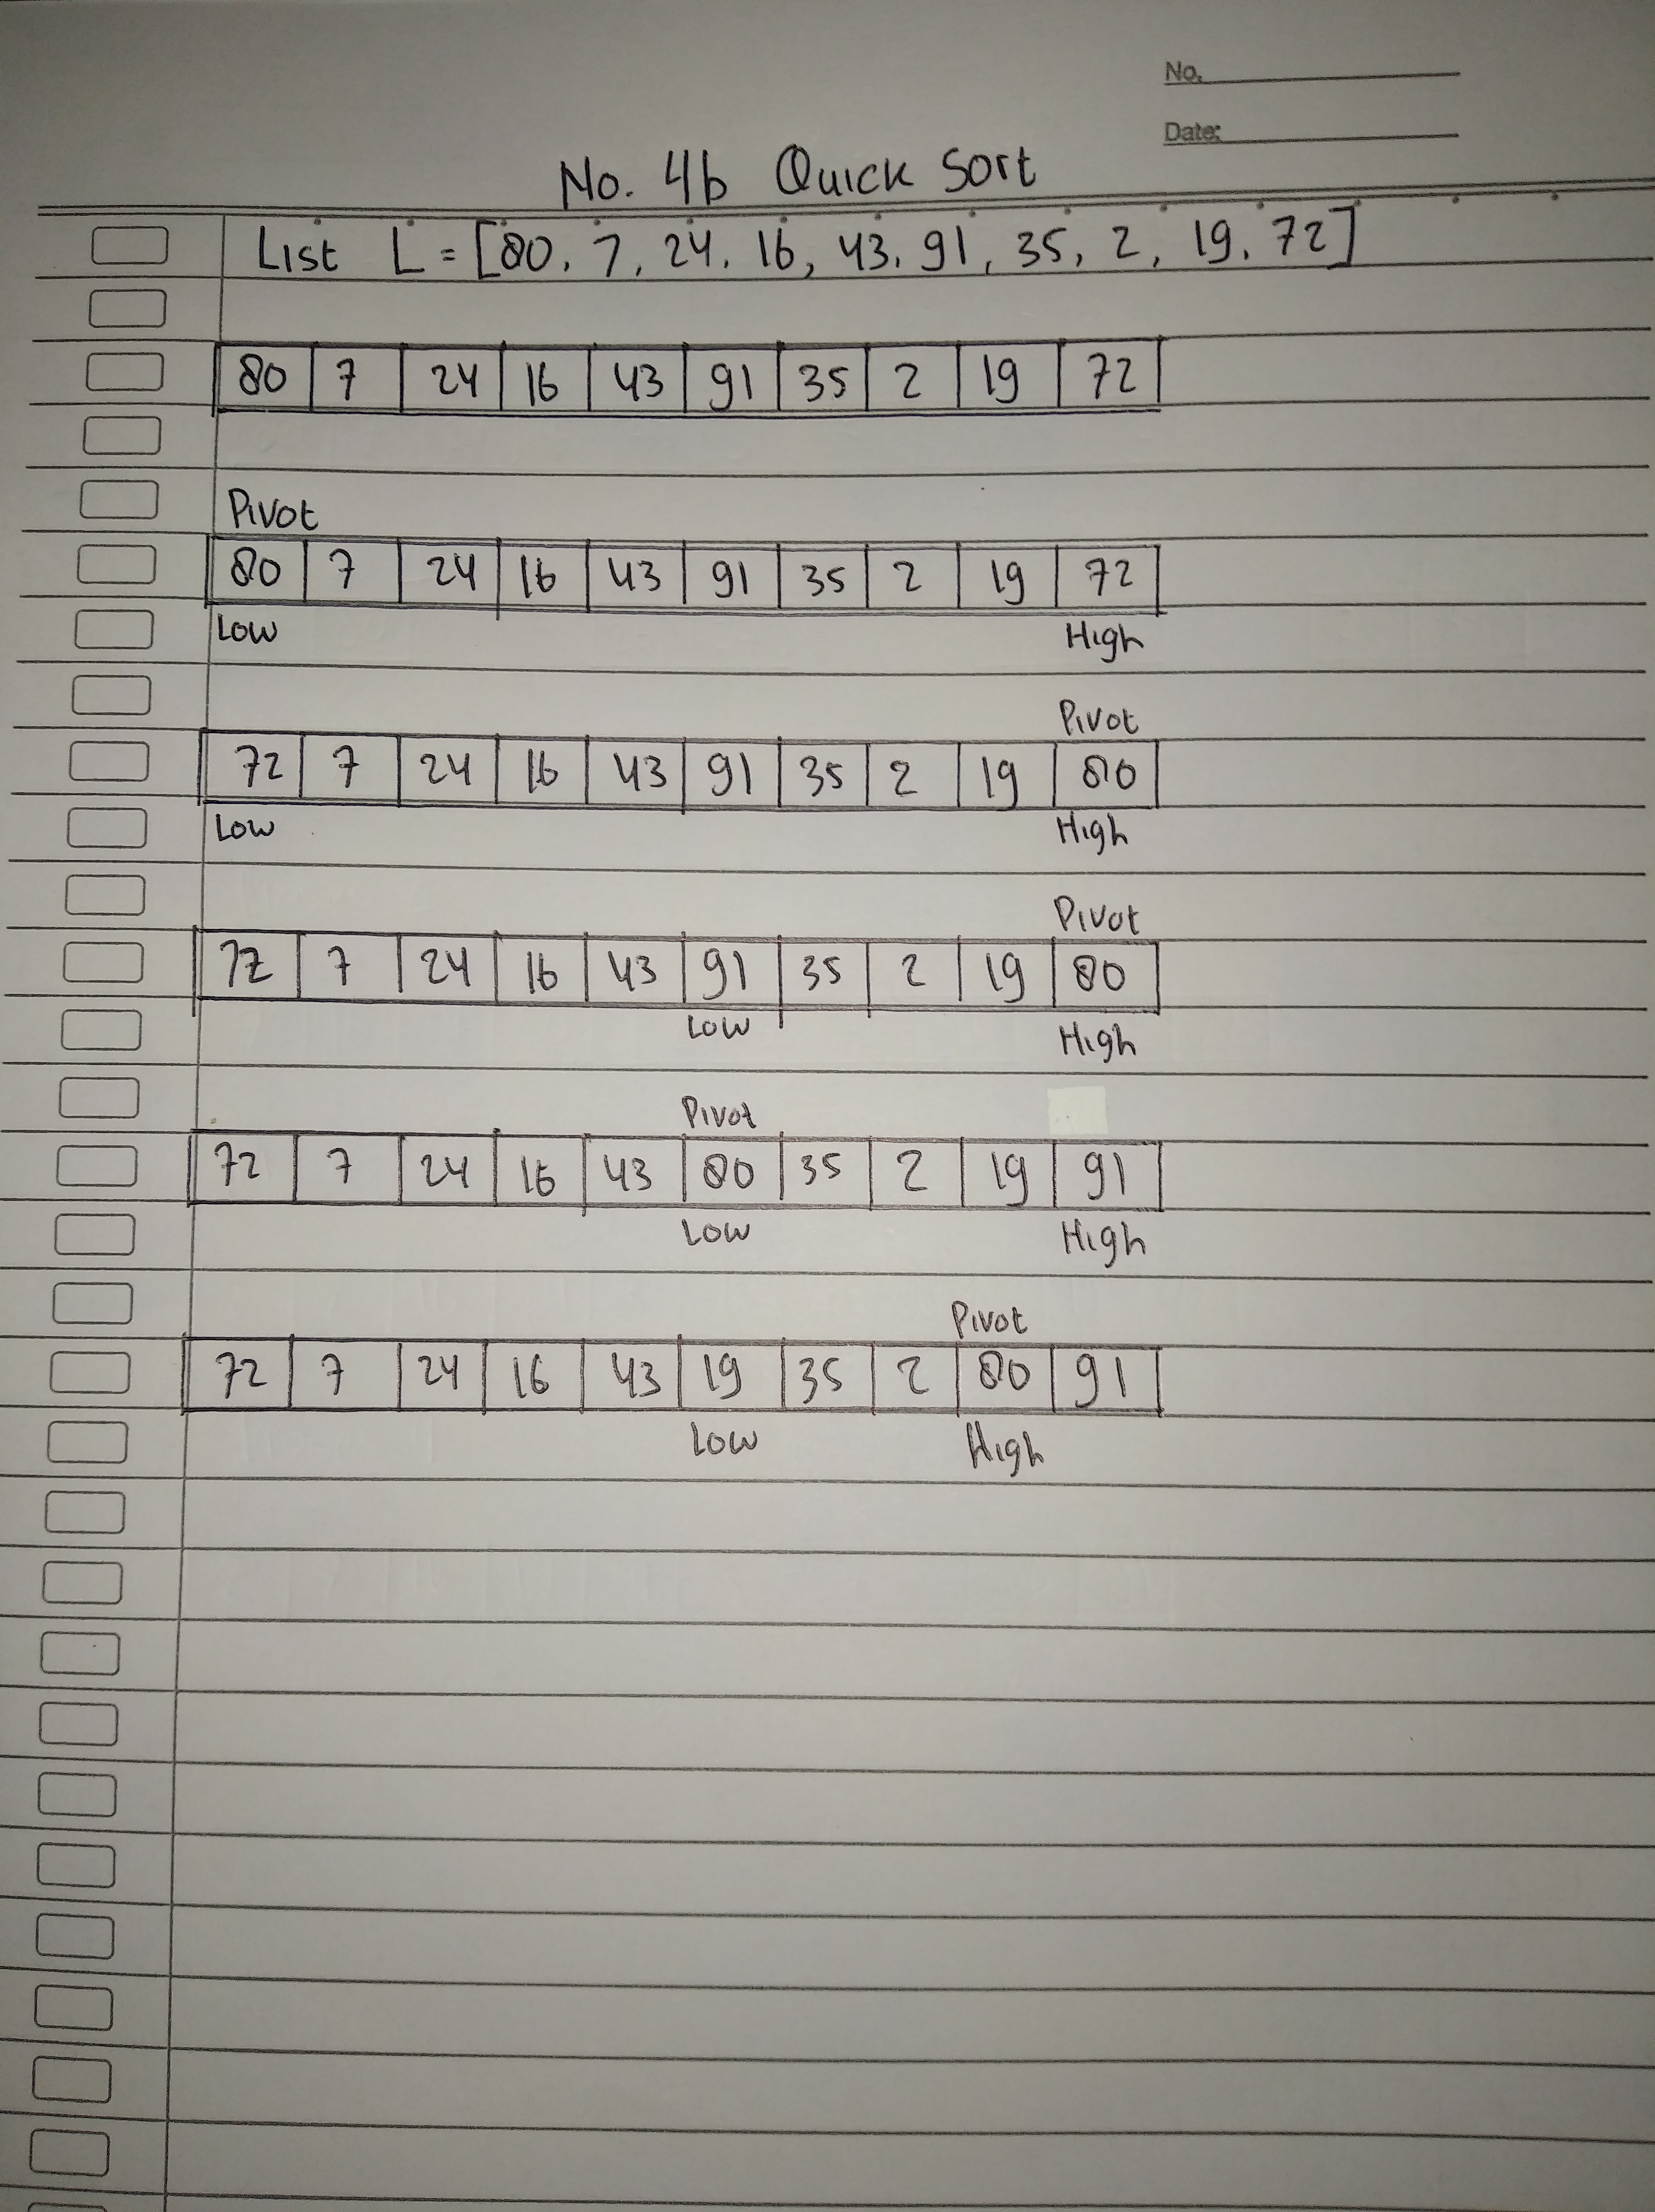 No.
Date:
No. 4b Quick Sort
List L = [80, 7, 24, 16, 43, 91, 35, 2, 19, 72]
80 7 24 16 43 91 35 2 19 72
Pivot
80 7 24 16 43 91 35 2 19 72
Low High
Pivot
72 7 24 16 43 91 35 2 19 80
Low High
Pivot
72 7 24 16 43 91 35 2 19 80
Low High
Pivot
72 7 24 16 43 80 35 2 19 91
Low High
Pivot
72 7 24 16 43 19 35 2 80 91
Low High